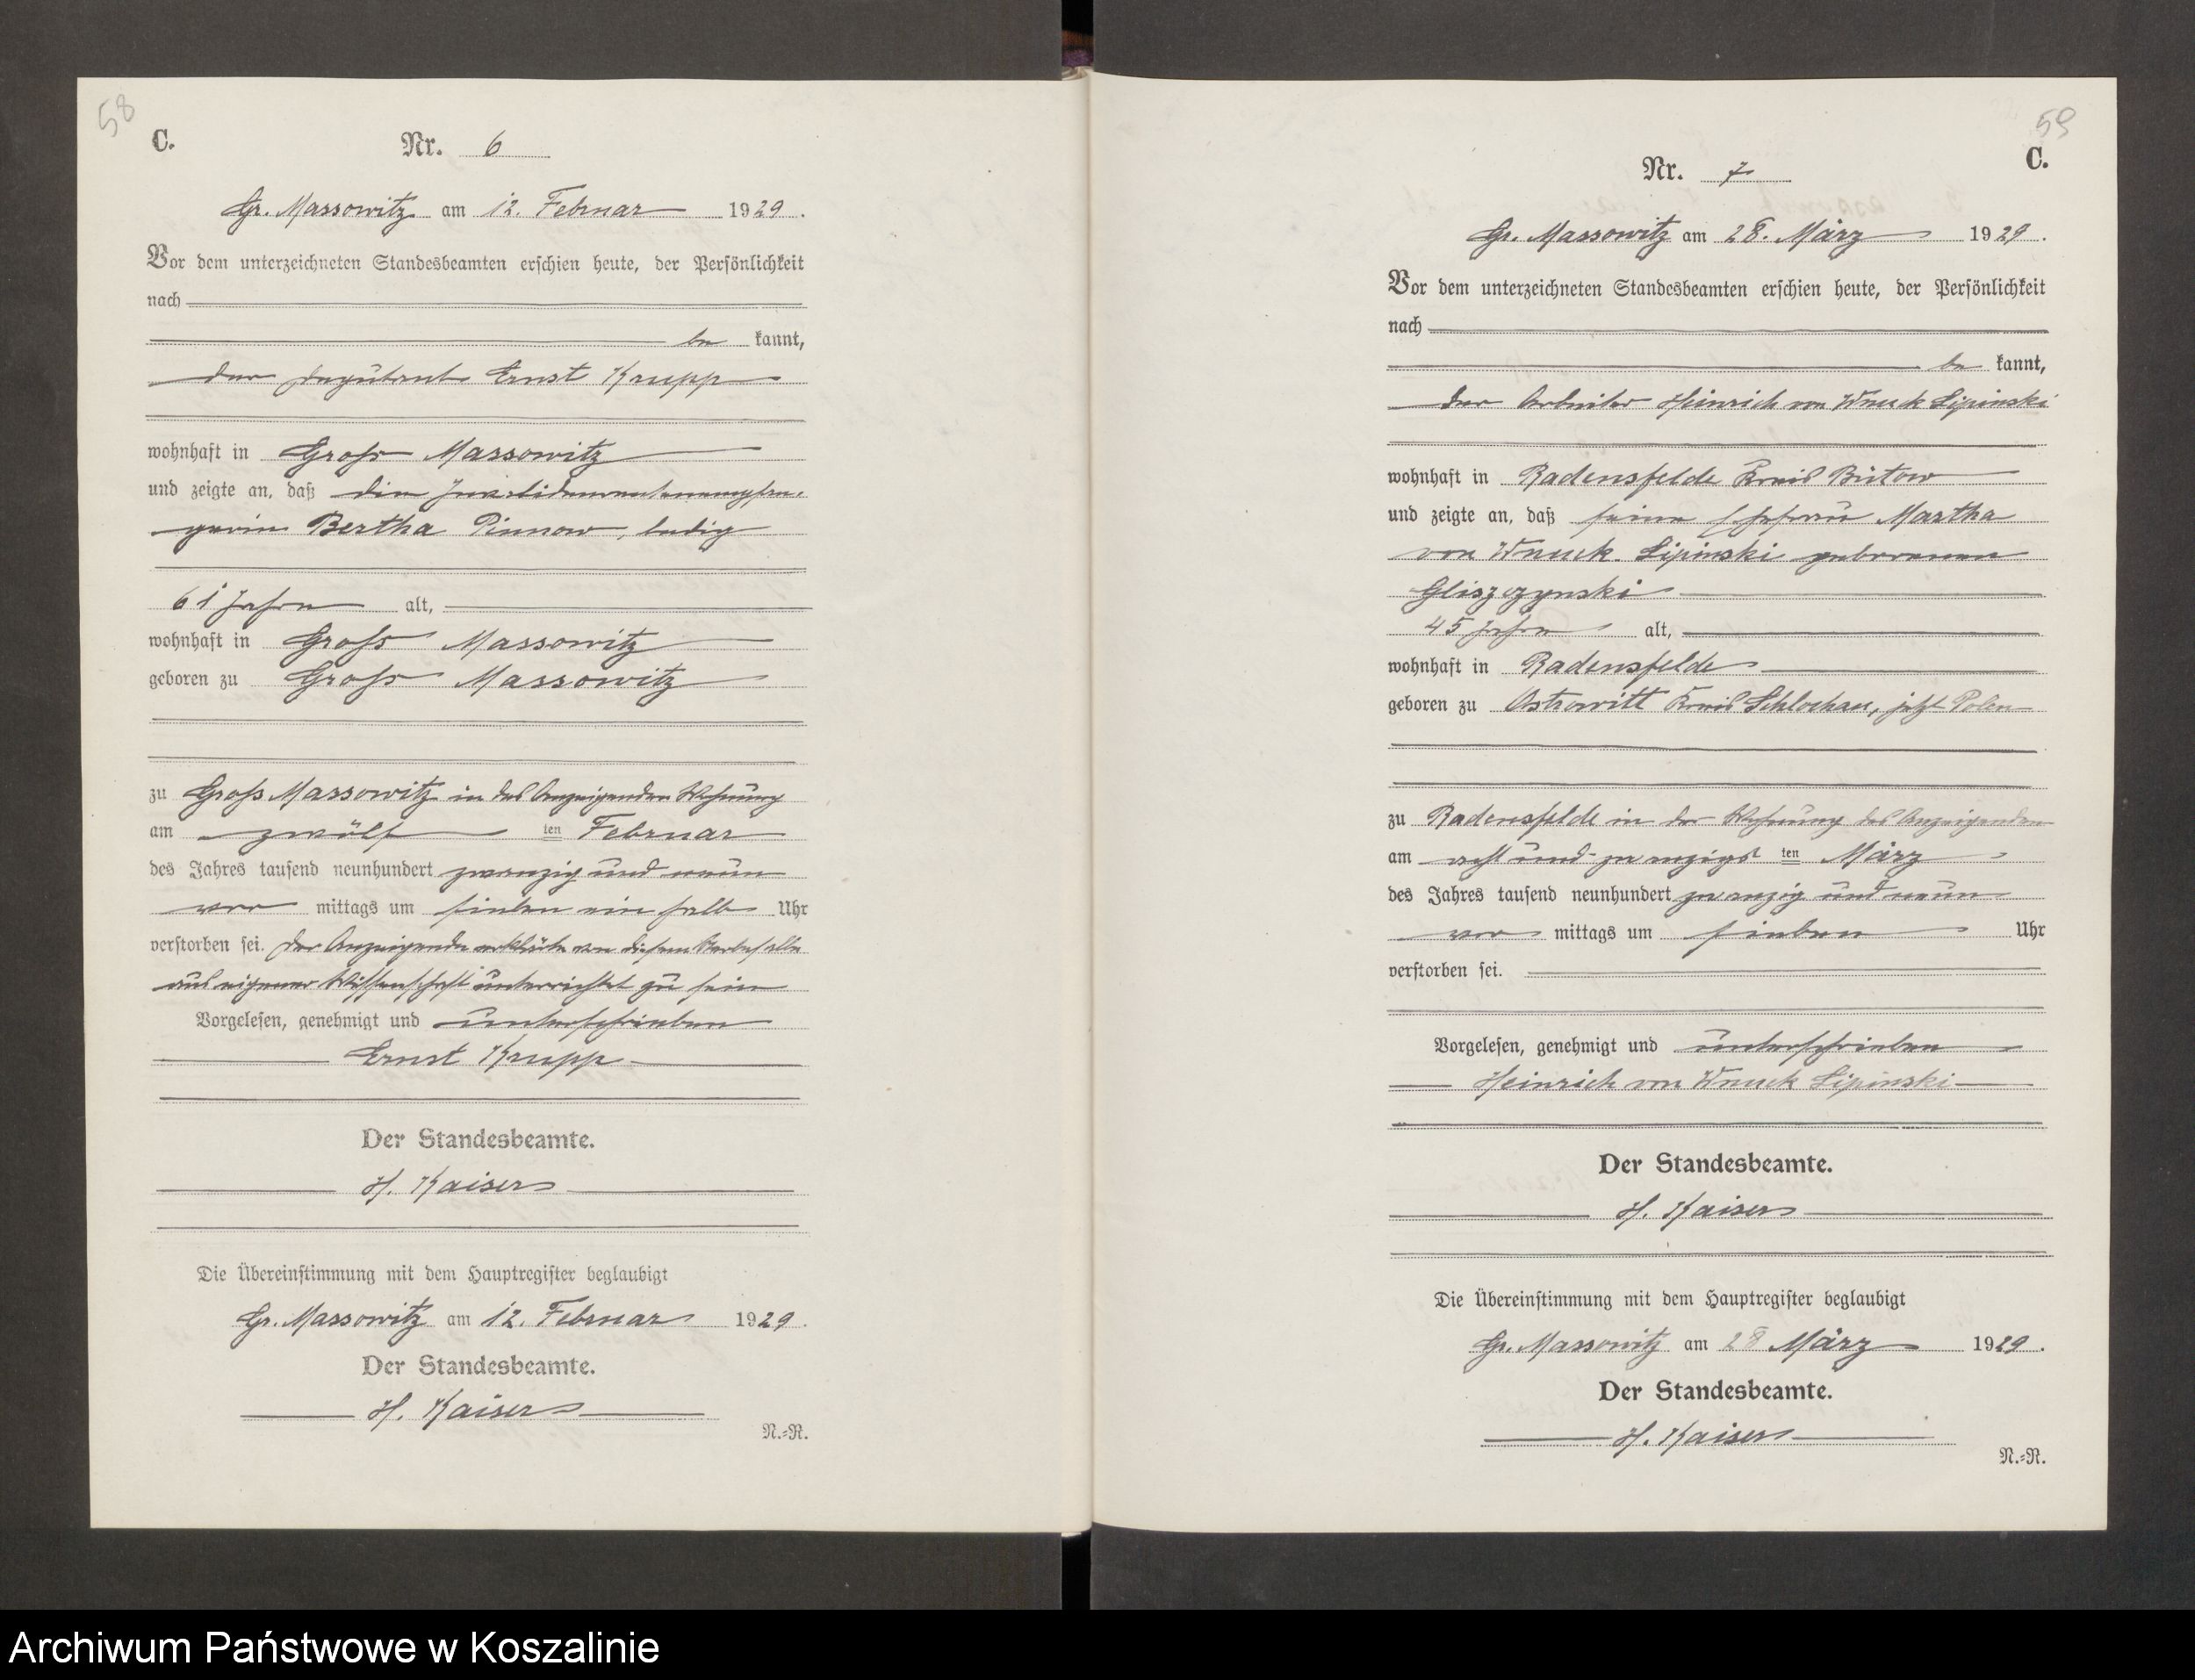 58
C.
Nr. 6
Gr. Massowitz am 12. Februar 1929.
Vor dem unterzeichneten Standesbeamten erschien heute, der Persönlichkeit
nach
be kannt,
der Deputant Ernst Krupp
wohnhaft in Groß Massowitz
und zeigte an, daß die Invalidenrentenempfän-
gerin Bertha Pinnow, ledig
61 Jahre alt,
wohnhaft in Groß Massowitz
geboren zu Groß Massowitz
zu Groß Massowitz in des Anzeigenden Wohnung
am zwölf ten Februar
des Jahres tausend neunhundert zwanzig und neun
vor mittags um sieben ein halb Uhr
verstorben sei. Der Anzeigende erklärte von diesem Sterbefalle
aus eigener Wissenschaft unterrichtet zu sein
Vorgelesen, genehmigt und unterschrieben
Ernst Krupp
Der Standesbeamte.
H. Kaiser
Die Übereinstimmung mit dem Hauptregister beglaubigt
Gr. Massowitz am 12. Februar 1929.
Der Standesbeamte.
H. Kaiser
N.-R.
59
C.
Nr. 7
Gr. Massowitz am 28. März 1929.
Vor dem unterzeichneten Standesbeamten erschien heute, der Persönlichkeit
nach
be kannt,
der Arbeiter Heinrich von Wnuck Lipinski
wohnhaft in Radensfelde Kreis Bütow
und zeigte an, daß seine Ehefrau Martha
von Wnuck Lipinski geborenen
Gliszczynski
45 Jahre alt,
wohnhaft in Radensfelde
geboren zu Ostrowitt Kreis Schlochau, jetzt Polen
zu Radensfelde in der Wohnung des Anzeigenden
am acht und zwanzigs ten März
des Jahres tausend neunhundert zwanzig und neun
vor mittags um sieben Uhr
verstorben sei.
Vorgelesen, genehmigt und unterschrieben
Heinrich von Wnuck Lipinski
Der Standesbeamte.
H. Kaiser
Die Übereinstimmung mit dem Hauptregister beglaubigt
Gr. Massowitz am 28 März 1929.
Der Standesbeamte.
H. Kaiser
N.-R.
Archiwum Państwowe w Koszalinie